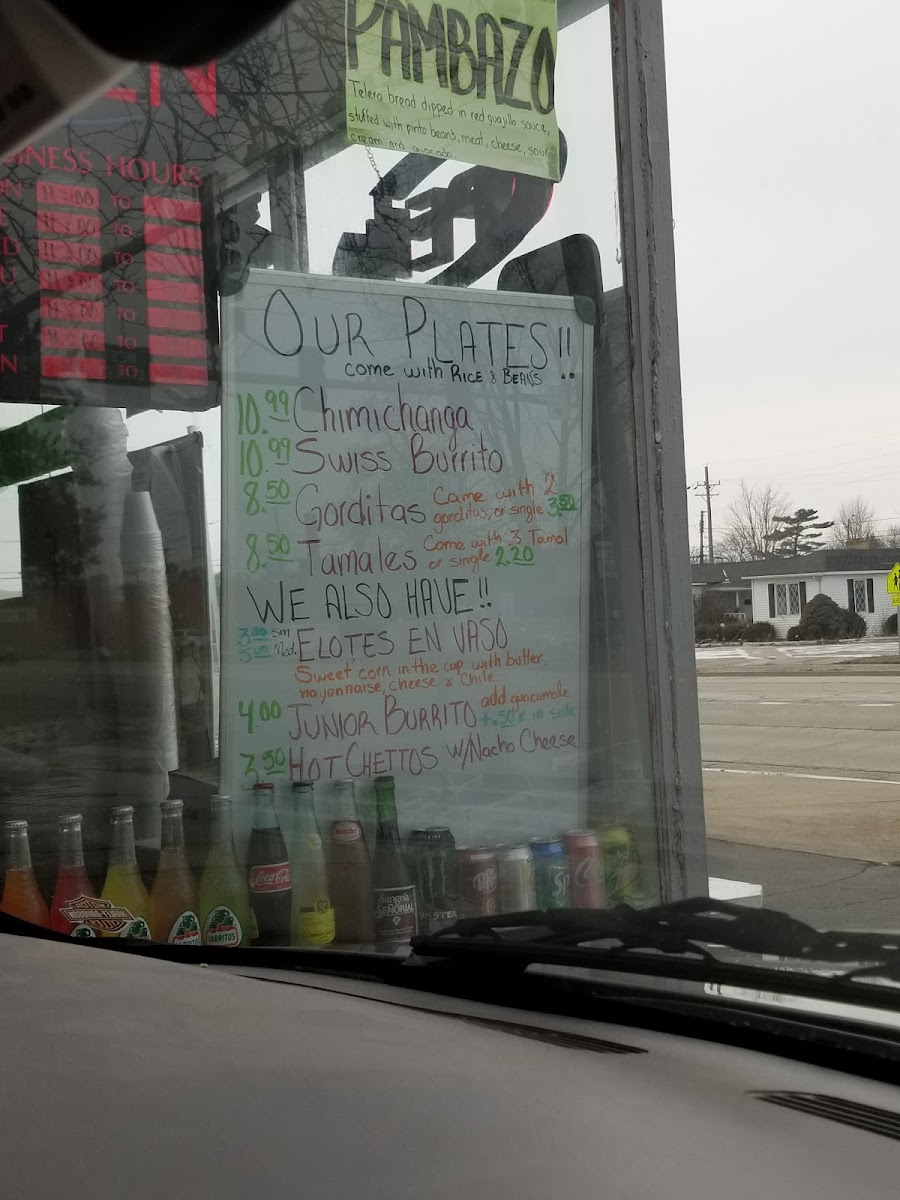 PAMBAZO
Telera bread dipped in red guajillo sauce,
stuffed with pinto beans, meat, cheese, sour
cream and avocado.
EN
SINESS HOURS
TO
TO
TO
TO
TO
TO
TO
OUR PLATES!!
come with RICE & BEANS
10.99 Chimichanga
10.99 Swiss Burrito
8.50 Gorditas Came with 2
gorditas, or single 3.50
8.50 Tamales Come with 3 Tamal
or single 2.20
WE ALSO HAVE!!
3.00 sm ELOTES EN VASO
Med.
Sweet corn in the cup with butter,
nayonnaise, cheese & Chile
4.00 JUNIOR BURRITO add guacamole
+.50¢ in side
3.50 HOT CHETTOS W/Nacho Cheese
Coca-Cola
Sangria
SEÑORIAL
JARRITOS
MONSTER
Dr